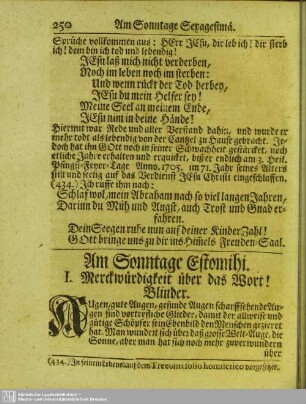 250 Am Sonntage Sexagesimä.
Sprüche vollkommen aus: HErr JEsu, dir leb ich! dir sterb
ich! dein bin ich tod und lebendig!
JEsu laß mich nicht verderben,
Noch im leben noch im sterben:
Und wenn rückt der Tod herbey,
JEsu du mein Helfer sey!
Meine Seel an meinem Ende,
JEsu nim in deine Hände!
Hiermit war Rede und aller Verstand dahin, und wurde er
mehr todt als lebendig von der Cantzel zu Hause gebracht. Je-
doch hat ihn GOtt noch in seiner Schwachheit gestärcket, noch
etliche Jahre erhalten und erquicket, bis er endlich am 3. Heil.
Pfingst-Feyer-Tage Anno. 1705. im 71. Jahr seines Alters
still und seelig auf das Verdienst JEsu Christi eingeschlaffen.
(434.) Ich ruffe ihm nach:
Schlaf wol, mein Abraham nach so viel langen Jahren,
Darinn du Müh und Angst, auch Trost und Gnad er-
fahren.
Dein Seelgen ruhe nun auf deiner Kinder Zahl!
GOtt bringe uns zu dir ins Himmels Freuden-Saal.
Am Sonntage Estomihi.
I. Merckwürdigkeit über das Wort!
Blinder.
AUgen, gute Augen, gesunde Augen scharffsehende Au-
gen sind vortrefliche Glieder, damit der allweise und
gütigste Schöpfer sein Ebenbild den Menschen gezieret
hat. Man wundert sich über das grosse Welt-Auge, die
Sonne, aber man hat sich noch mehr zu verwundern
über
(434.) In seinem Lebenslauf dem folio homiletico vorgesetzet.